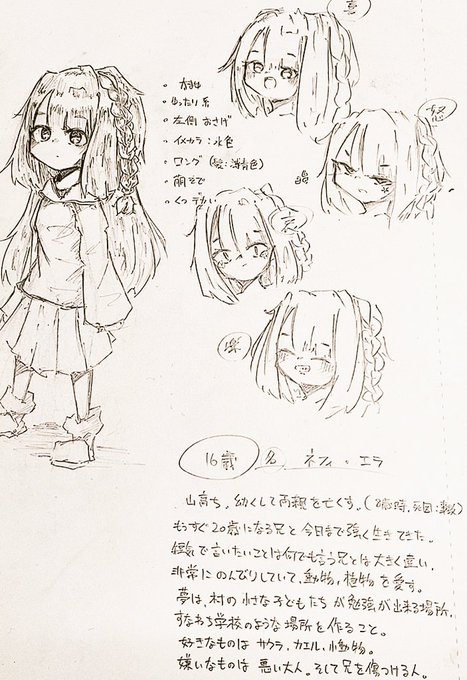 喜
・ゆったり系
・左側 おさげ
・イメカラ：水色
・ロング (髪：
・萌そで
・くつ デカい
怒
哀
楽
16歳 名 ネフィ・エラ
山育ち。幼くして両親を亡くす。(
もうすぐ20歳になる兄と今日まで強く生きてきた。
で言いたいことは何でも言う兄とは大きく違い、
非常にのんびりしていて、動物、植物を愛す。
夢は、村の小さな子どもたちが勉強が出来る場所、
すなわち学校のような場所を作ること。
好きなものは サクラ、カエル、小動物。
嫌いなものは 悪い大人。そして兄を傷つける人。